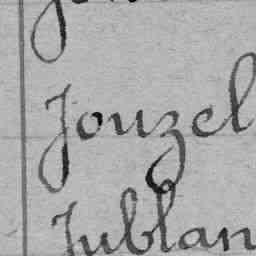 Jouzel
Jublan